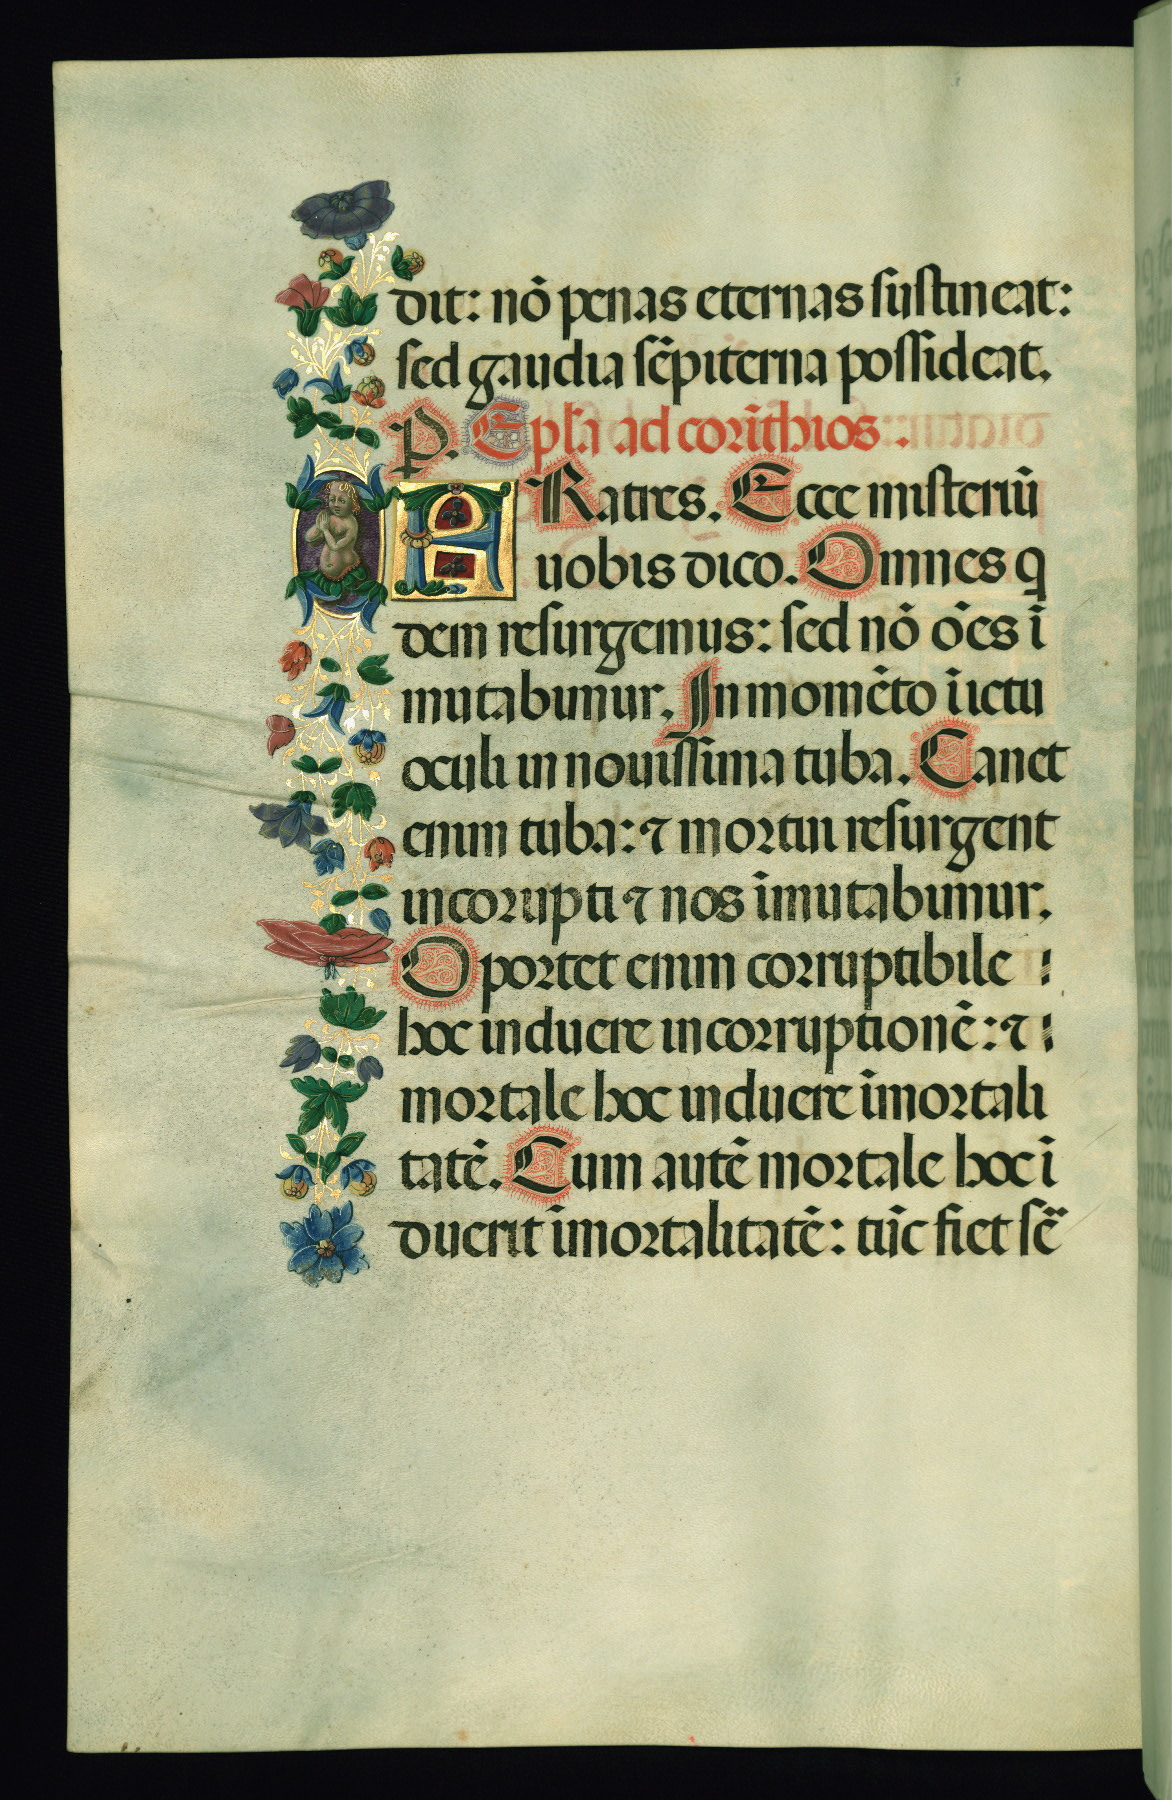 dit: nō penas eternas sustineat:
sed gaudia sēpiterna possideat.
P. Epl̄a ad corīthios.
FRatres. Ecce misteriū
uobis dico. Omnes q
dem resurgemus: sed nō ōēs ī
mutabimur. In momēto ī ictu
oculi in nouissima tuba. Canet
enim tuba: ⁊ mortui resurgent
incorupti ⁊ nos īmutabimur.
Oportet enim corruptibile
hoc induere incorruptionē: ⁊
mortale hoc induere īmortali
tatē. Cum autē mortale hoc ī
duerit īmortalitatē: tūc fiet sē